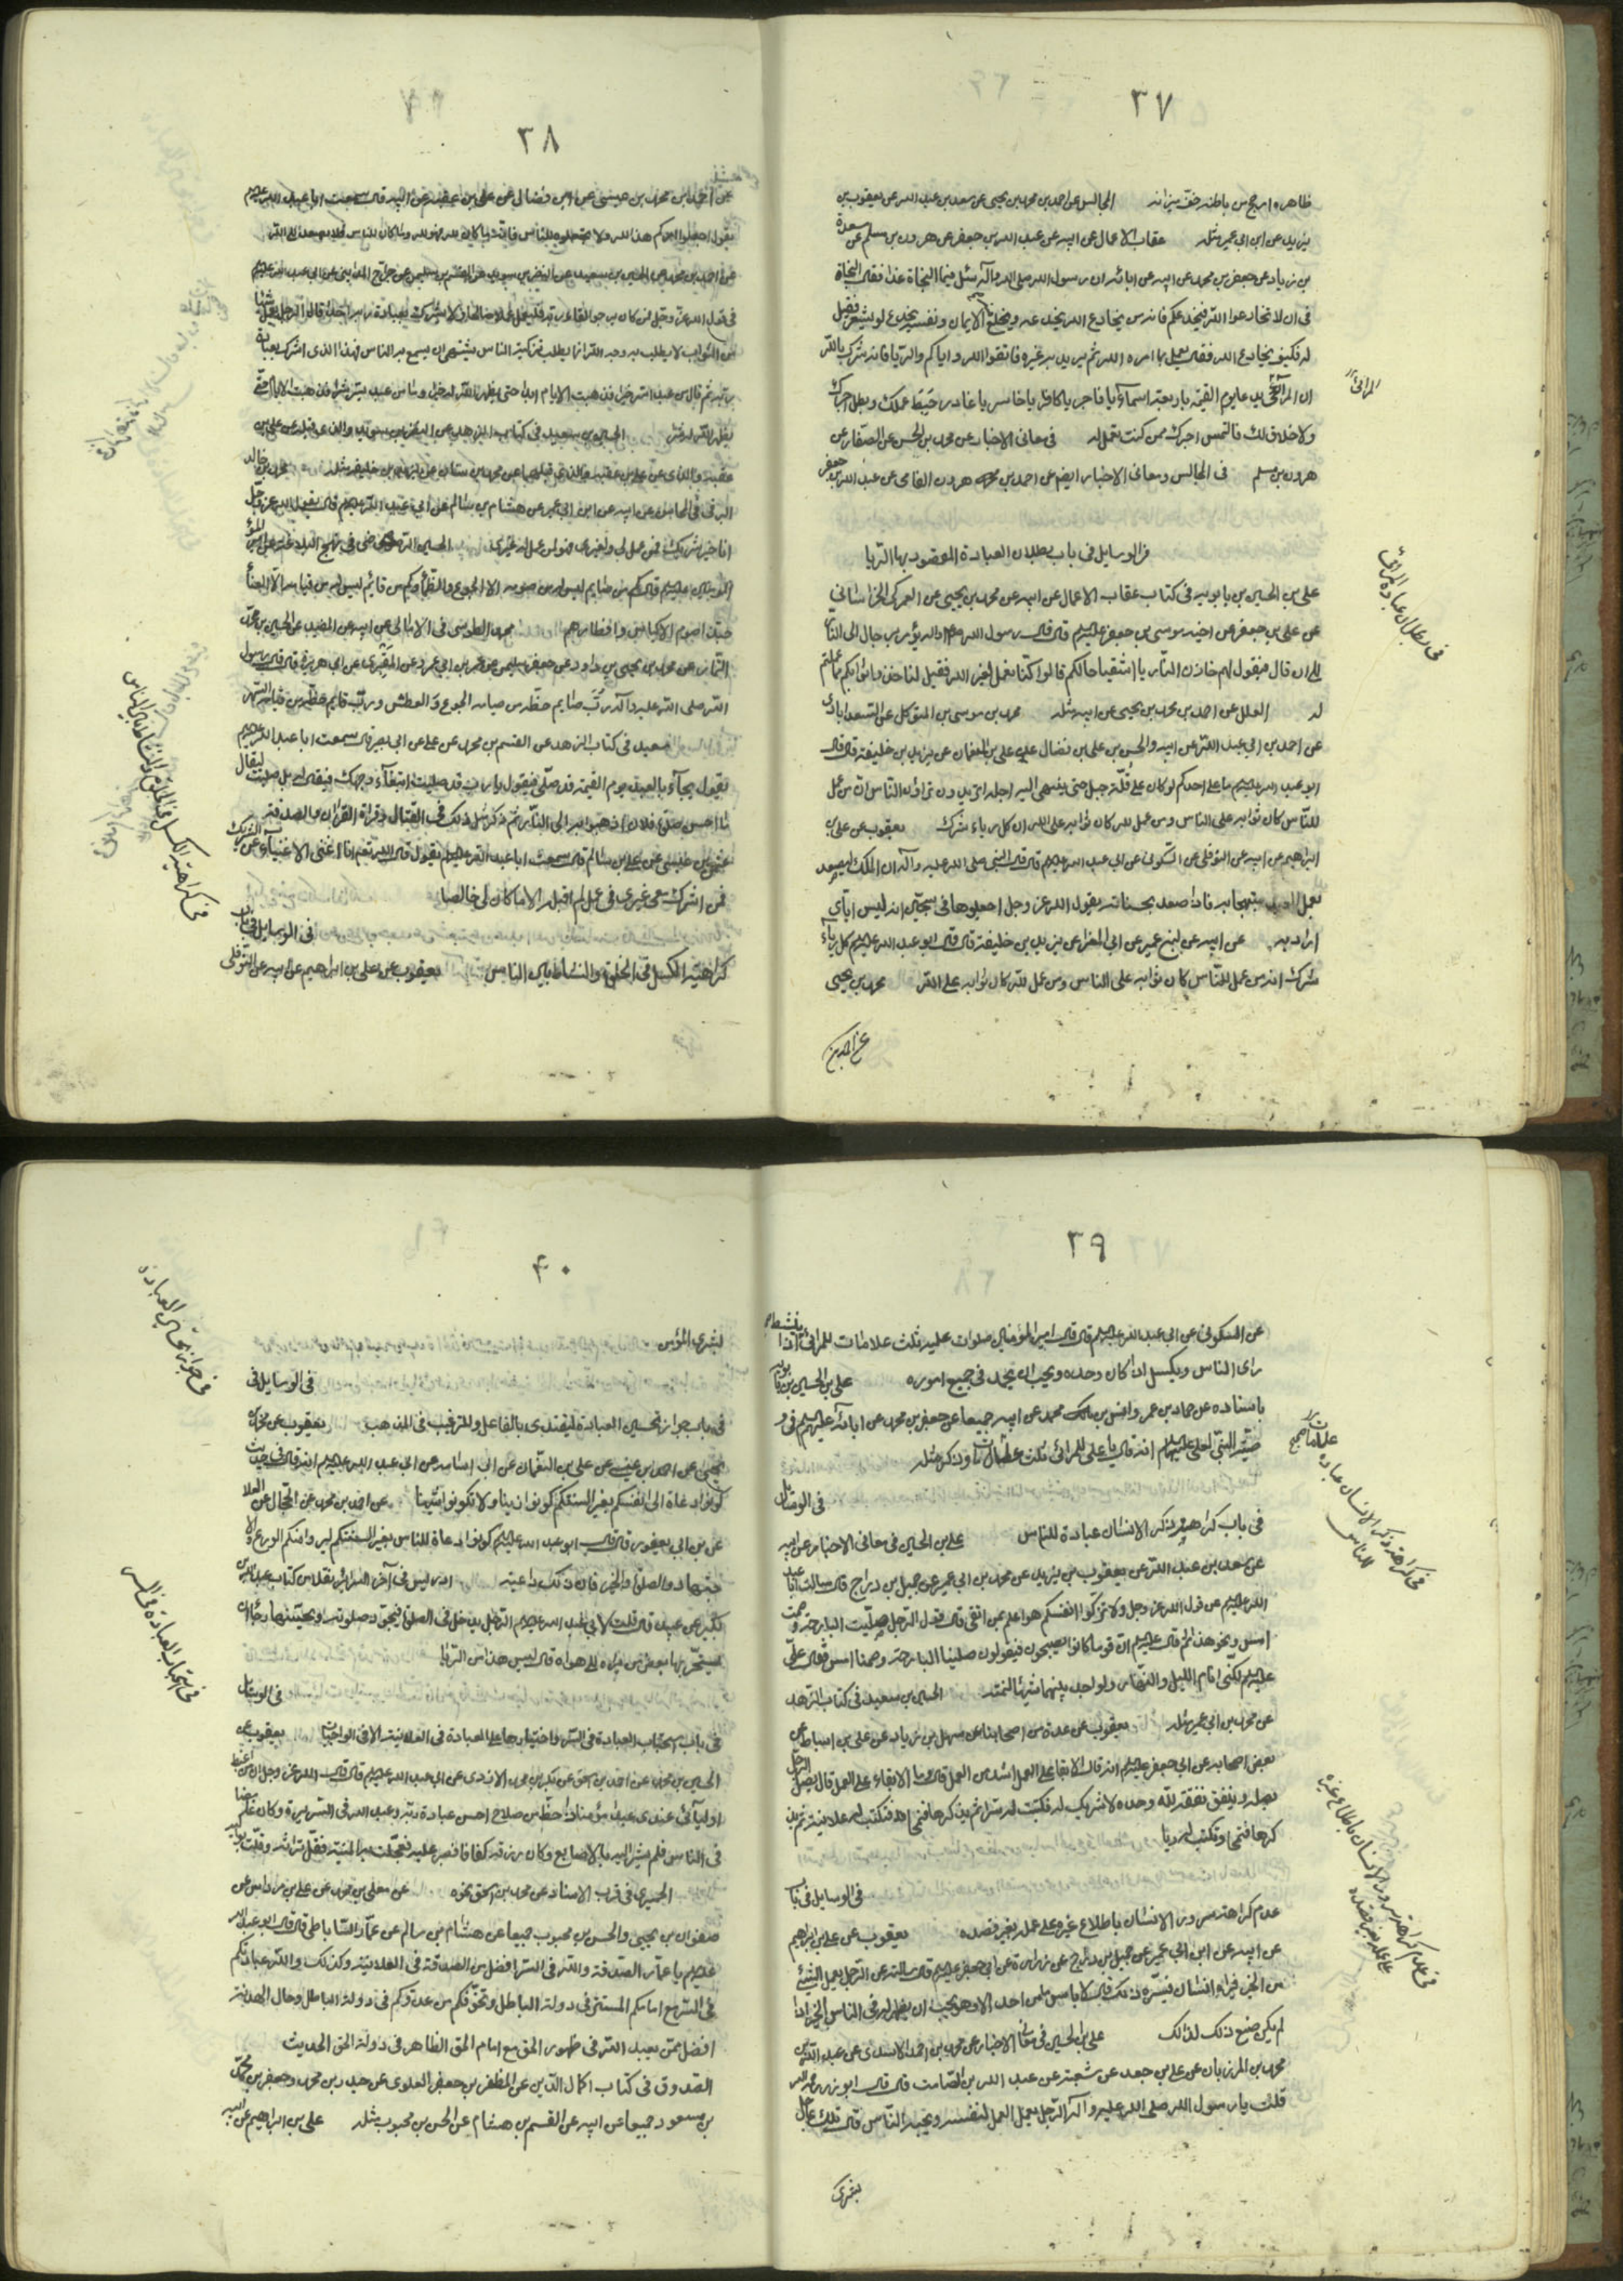 ٣٧
ظاهره ارجح من باطنه خف ميزانه المجالس عن احمد بن محمد بن يحيى عن سعد بن عبد الله عن يعقوب بن
يزيد عن ابن ابي عمير مثله عقاب الاعمال عن ابيه عن عبد الله بن جعفر عن هرون بن مسلم عن مسعدة
بن زياد عن جعفر بن محمد عن ابيه عن ابائه ان رسول الله صلى الله واله سئل فيما النجاة غدا فقال النجاة
في ان لا تخادعوا الله فيخدعكم فانه من يخادع الله يخدعه ويخلع منه الايمان ونفسه يخدع لو يشعر فقيل
له فكيف يخادع الله فقال يعمل بما امره الله ثم يريد به غيره فاتقوا الله واياكم والريا فانه شرك بالله
ان المرائي يدعى يوم القيمة باربعة اسماء يا فاجر يا كافر يا خاسر يا غادر حبط عملك وبطل اجرك
ولا خلاق لك فالتمس اجرك ممن كنت تعمل له في معاني الاخبار عن محمد بن الحسن عن الصفار عن
هرون بن مسلم في المجالس ومعاني الاخبار ايضا عن احمد بن هرون الفامي عن عبد الله بن جعفر
في الوسايل في باب بطلان العبادة المقصود بها الريا
على بن الحسين بن بابويه في كتاب عقاب الاعمال عن ابيه عن محمد بن يحيى عن العمركي الخراساني
عن على بن جعفر عن اخيه موسى بن جعفر عليهم قال قال رسول الله يؤمر برجال الى النار
الى ان قال فيقول لهم خازن النار يا اشقيا ما حالكم قالوا كنا نعمل لغير الله فقيل لنا خذوا ثوابكم ممن عملتم
له العلل عن احمد بن محمد بن يحيى عن ابيه مثله محمد بن موسى بن المتوكل عن السعدابادي
عن احمد بن ابي عبد الله عن ابيه والحسن بن على بن فضال على بن النعمان عن يزيد بن خليفة قال قال
ابو عبد الله عليه ما على احدكم لو كان على قلة جبل حتى ينتهى اليه اجله اتريدون تراؤن الناس ان من عمل
للناس كان ثوابه على الناس ومن عمل لله كان ثوابه على الله ان كل رياء شرك يعقوب عن على بن
ابراهيم عن ابيه عن النوفلى عن السكونى عن ابي عبد الله عليه قال قال النبي صلى الله عليه واله ان الملك ليصعد
بعمل العبد مبتهجا به فاذا صعد بحسناته يقول الله عز وجل اجعلوها في سجين انه ليس اياي
اراد به عن ابيه عن ابن ابي عمير عن ابي المغرا عن يزيد بن خليفة قال قال ابو عبد الله عليه كل رياء
شرك انه من عمل للناس كان ثوابه على الناس ومن عمل لله كان ثوابه على الله محمد بن يحيى
المرائي
في بطلان عبادة المرائي
عن احمد بن
٣٨
عن احمد بن محمد بن عيسى عن ابن فضال عن على بن عقبة عن ابيه قال سمعت ابا عبد الله عليه
يقول اجعلوا امركم هذا لله ولا تجعلوه للناس فانه ما كان لله فهو لله وما كان للناس فلا يصعد الى الله
عن احمد بن محمد عن الحسين بن سعيد عن النضر بن سويد عن القسم بن سليمن عن جراح المدايني عن ابي عبد الله عليه
في قول الله عز وجل فمن كان يرجو لقاء ربه فليعمل عملا صالحا ولا يشرك بعبادة ربه احدا قال الرجل يعمل شيئا
من الثواب لا يطلب به وجه الله انما يطلب تزكية الناس يشتهي ان يسمع به الناس فهذا الذي اشرك بعبادة
ربه ثم قال ما من عبد اسر خيرا فذهبت الايام ابدا حتى يظهر الله له خيرا وما من عبد يسر شرا فذهبت الايام حتى
يظهر الله له شرا الحسين بن سعيد في كتاب الزهد عن النضر بن سويد والذي قبله عن على بن
عقبة والذي قبلهما عن محمد بن سنان عن يزيد بن خليفة مثله محمد بن خالد
البرقي في المحاسن عن ابيه عن ابن ابي عمير عن هشام بن سالم عن ابي عبد الله عليه قال يقول الله عز وجل
انا خير شريك فمن عمل لي ولغيري فهو لمن عمل له غيري محمد بن الحسين الرضي في نهج البلاغة عن امير
المؤمنين عليه قال كم من صايم ليس له من صومه الا الجوع والظمأ وكم من قائم ليس له من قيامه الا العناء
حبذا صوم الاكياس وافطارهم محمد الطوسى في الامالي عن ابيه عن المفيد عن الحسين بن محمد
التمار عن محمد بن يحيى بن داود عن جعفر بن سليمن عن عمر بن ابي عمرو عن المقبري عن ابي هريرة قال قال رسول
الله صلى الله عليه واله رب صايم حظه من صيامه الجوع والعطش ورب قايم حظه من قيامه السهر
سعيد في كتاب الزهد عن القسم بن محمد عن على عن ابي بصير قال سمعت ابا عبد الله عليه
يقول يجاء بالعبد يوم القيمة قد صلى فيقول يا رب قد صليت ابتغاء وجهك فيقال له بل صليت ليقال
ما احسن صلوة فلان اذهبوا به الى النار ثم ذكر مثل ذلك في القتال وقراءة القران والصدقة
عثمن بن عيسى عن على بن سالم قال سمعت ابا عبد الله عليه يقول قال الله تعم انا اغنى الاغنياء عن الشريك
فمن اشرك معى غيرى في عمل لم اقبله الا ما كان لي خالصا
في الوسايل في باب
كراهية الكسل في الخلوة والنشاط بين الناس يعقوب عن على بن ابراهيم عن ابيه عن النوفلى
في كراهية الكسل في الخلوة والنشاط بين الناس
٣٩
عن السكونى عن ابي عبد الله عليه قال قال امير المؤمنين صلوات عليه ثلث علامات للمرائي ينشط اذا
راى الناس ويكسل اذا كان وحده ويحب ان يحمد في جميع اموره على بن الحسين بن بابويه
باسناده عن حماد بن عمرو وانس بن محمد عن ابيه جميعا عن جعفر بن محمد عن ابائه عليهم في و
صية النبي لعلى عليهما انه قال يا على للمرائي ثلث علامات وذكر مثله
في الوسايل
في باب كراهية ذكر الانسان عبادة للناس على بن الحسين في معاني الاخبار عن ابيه
عن سعد بن عبد الله عن يعقوب بن يزيد عن محمد بن ابي عمير عن جميل بن دراج قال سالت ابا عبد
الله عليه عن قول الله عز وجل ولا تزكوا انفسكم هو اعلم بمن اتقى قال قول الرجل صليت البارحة وصمت
امس ونحو هذا ثم قال عليه ان قوما كانوا يصبحون فيقولون صلينا البارحة وصمنا امس فقال على
عليه لكنى انام الليل والنهار ولو اجد بينهما شيئا لنمته الحسين بن سعيد في كتاب الزهد
عن محمد بن ابي عمير مثله يعقوب عن عدة من اصحابنا عن سهل بن زياد عن على بن اسباط عن
بعض اصحابه عن ابي جعفر عليه انه قال الابقاء على العمل اشد من العمل قال وما الابقاء على العمل قال يصل الرجل
بصلة وينفق نفقة لله وحده لا شريك له فتكتب له سرا ثم يذكرها فتمحى فتكتب له علانية ثم
يذكرها فتمحى وتكتب له ريا
في الوسايل في باب
عدم كراهة سرور الانسان باطلاع غيره على عمله بغير قصده يعقوب عن على بن ابراهيم
عن ابيه عن ابن ابي عمير عن جميل بن دراج عن زرارة عن ابي جعفر عليه قال سالته عن الرجل يعمل الشيئ
من الخير فيراه انسان فيسره ذلك قال لا باس ما من احد الا وهو يحب ان يظهر له في الناس الخير اذا
لم يكن صنع ذلك لذلك على بن الحسين في معاني الاخبار عن محمد بن احمد الاسدى عن عبد الله بن
محمد بن المرزبان عن على بن جعد عن شعبة عن عبد الله بن الصامت قال قال ابو ذر رحمه الله
قلت يا رسول الله صلى الله عليه واله الرجل يعمل العمل لنفسه ويحبه الناس قال تلك عاجل
في كراهة ذكر الانسان عبادة للناس
في عدم كراهة سرور الانسان باطلاع غيره على عمله بغير قصده
بشرى
٤٠
بشرى المؤمن
في الوسايل في
في باب جواز تحسين العبادة ليقتدى بالفاعل وللترغيب في المذهب يعقوب عن محمد بن
يحيى عن احمد بن عيسى عن على بن النعمان عن ابي اسامة عن ابي عبد الله عليه انه قال في حديث
كونوا دعاة الى انفسكم بغير السنتكم كونوا زينا ولا تكونوا شينا عن احمد بن محمد عن الحجال عن العلا
عن ابن ابي يعفور قال قال ابو عبد الله عليه كونوا دعاة للناس بغير السنتكم ليروا منكم الورع والا
جتهاد والصلوة والخير فان ذلك داعية ابن ادريس في آخر السرائر نقلا من كتاب عبد الله بن
بكير عن عبيد قال قلت لابي عبد الله عليه الرجل يدخل في الصلوة فيجود صلوته ويحسنها رجاء ان
يستجر بها بعض من يراه الى هواه قال ليس هذا من الريا
في الوسايل
في باب استحباب العبادة في السر واختيارها على العبادة في العلانية الا في الواجبات يعقوب عن
الحسين بن محمد عن احمد بن اسحق عن بكر بن محمد الازدى عن ابي عبد الله عليه قال قال الله عز وجل ان من اغبط
اوليائي عندى عبدا مؤمنا ذا حظ من صلاح احسن عبادة ربه وعبد الله في السريرة وكان غامضا
في الناس فلم يشر اليه بالاصابع وكان رزقه كفافا فصبر عليه فعجلت به المنية فقل تراثه وقلت بواكيه
الحميرى في قرب الاسناد عن محمد بن اسحق نحوه عن معلى بن محمد عن على بن مرداس عن
صفوان بن يحيى والحسن بن محبوب جميعا عن هشام بن سالم عن عمار الساباطى قال قال ابو عبد الله
عليه يا عمار الصدقة والله في السر افضل من الصدقة في العلانية وكذلك والله عبادتكم
في السر مع امامكم المستتر في دولة الباطل وتخوفكم من عدوكم في دولة الباطل وحال الهدنة
افضل ممن يعبد الله في ظهور الحق مع امام الحق الظاهر في دولة الحق الحديث
الصدوق في كتاب اكمال الدين عن المظفر بن جعفر العلوى عن حيدر بن محمد وجعفر بن محمد
بن مسعود جميعا عن ابيه عن القسم بن هشام عن الحسن بن محبوب مثله على بن ابراهيم عن ابيه
في جواز تحسين العبادة
في استحباب العبادة في السر